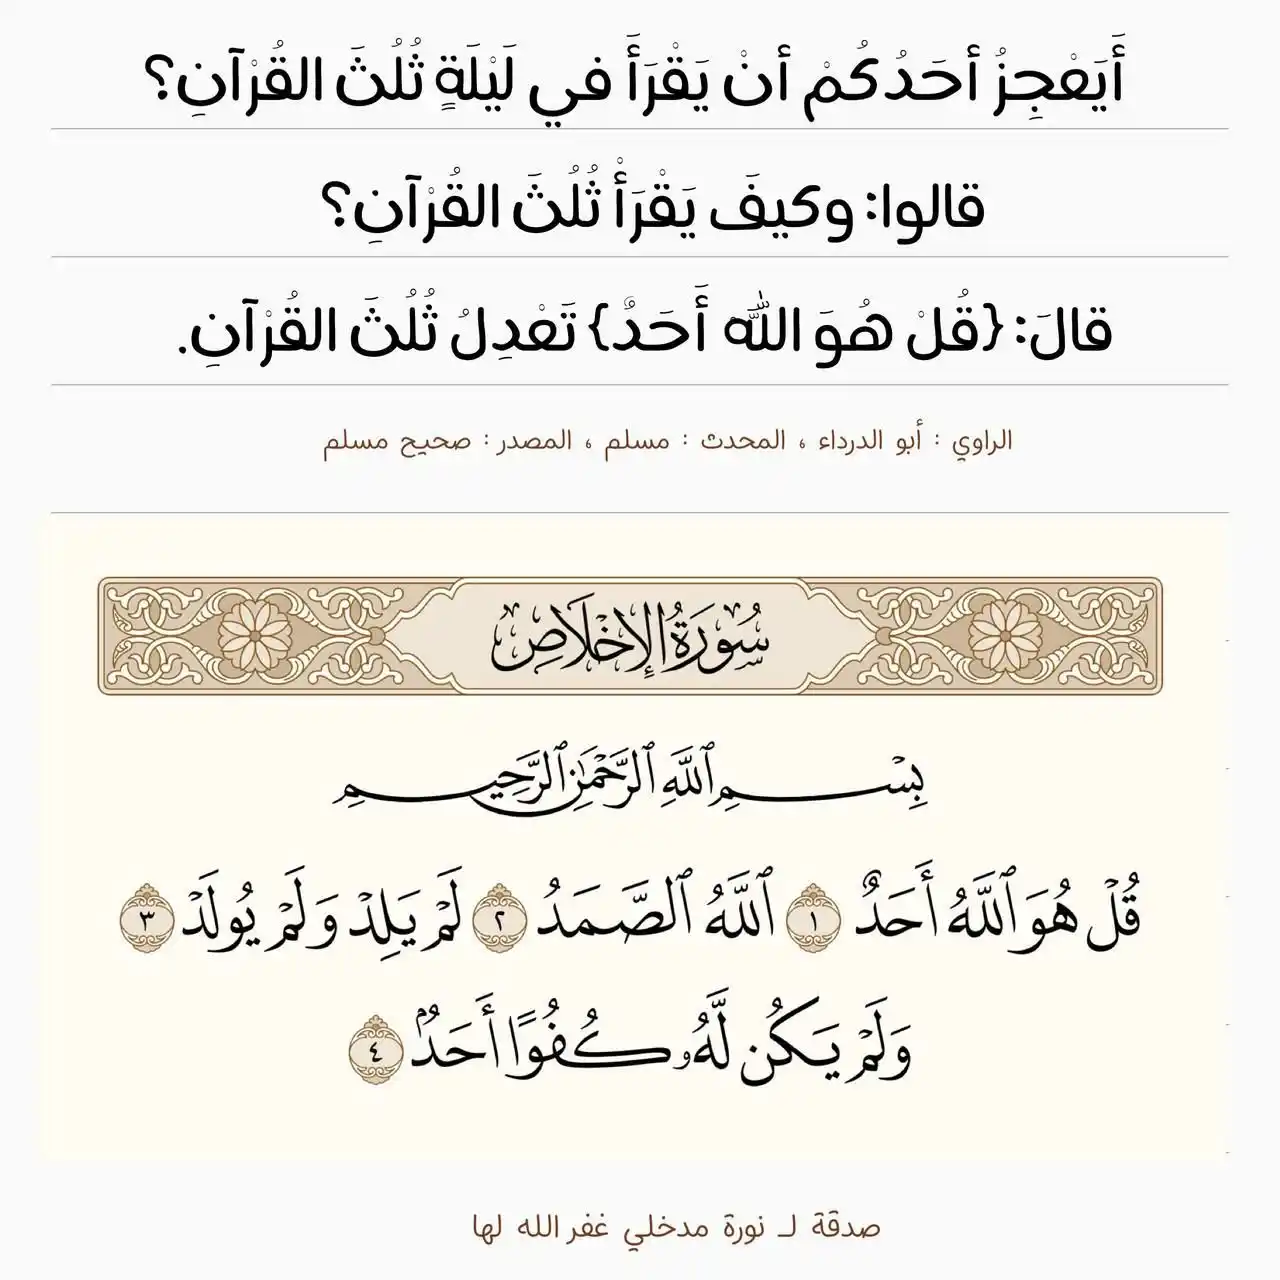 أَيَعْجِزُ أحَدُكُمْ أنْ يَقْرَأَ في لَيْلَةٍ ثُلُثَ القُرْآنِ؟
قالوا: وكيفَ يَقْرَأْ ثُلُثَ القُرْآنِ؟
قالَ: {قُلْ هُوَ اللَّه أَحَدٌ} تَعْدِلُ ثُلُثَ القُرْآنِ.
الراوي : أبو الدرداء ، المحدث : مسلم ، المصدر : صحيح مسلم
سُورَةُ الإِخْلَاصِ
بِسْمِ ٱللَّهِ ٱلرَّحْمَٰنِ ٱلرَّحِيمِ
قُلْ هُوَ ٱللَّهُ أَحَدٌ ١ ٱللَّهُ ٱلصَّمَدُ ٢ لَمْ يَلِدْ وَلَمْ يُولَدْ ٣
وَلَمْ يَكُن لَّهُۥ كُفُوًا أَحَدٌۢ ٤
صدقة لـ نورة مدخلي غفر الله لها